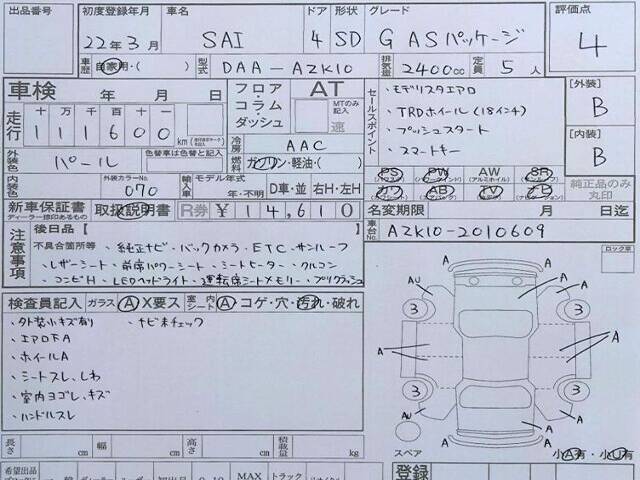 出品番号
初度登録年月 車名 ドア 形状 グレード 評価点
22年3月 SAI 4 SD G ASパッケージ 4
車歴 自家用・( ) 型式 DAA-AZK10 排気量 2400cc 定員 5人
車検 年 月 日
フロア・コラム・ダッシュ AT MTのみ記入 速
セールスポイント
・モデリスタエアロ
・TRDホイール(18インチ)
・プッシュスタート
・スマートキー
[外装] B
[内装] B
走行 十 万 千 百 十 一
111600 km
冷房 AAC
燃料 ガソリン・軽油・( )
外装色 パール 色替車は色替と記入
内装色 外装カラーNo. 070
輸入車 モデル年式 年・不明 D車・並 右H・左H
PS PW AW SR
(アルミホイル)
カワ AB TV ナビ
純正品のみ丸印
新車保証書 取扱説明書 R券 ¥14,610
ディーラー捺印あるもの
名変期限 月 日迄
車台No. AZK10-2010609
注意事項
後日品【 】
不具合箇所等 ・純正ナビ・バックカメラ・ETC・サンルーフ
・レザーシート・前席パワーシート・シートヒーター・クルコン
・コンビH・LEDヘッドライト・運転席シートメモリー・プリクラッシュ
検査員記入 ガラス A X要ス 室内シート A コゲ・穴・汚れ・破れ
・外装小キズ有り ・ナビ未チェック
・エアロ下A
・ホイールA
・シートスレ、しわ
・室内ヨゴレ、キズ
・ハンドルスレ
ロック車
A
AU A A
3 3
A A
3 3
A A A
A
スペア 小A有・小U有
長さ cm 幅 cm 高さ cm 積載量 kg
希望出品
MAX トラック
登録